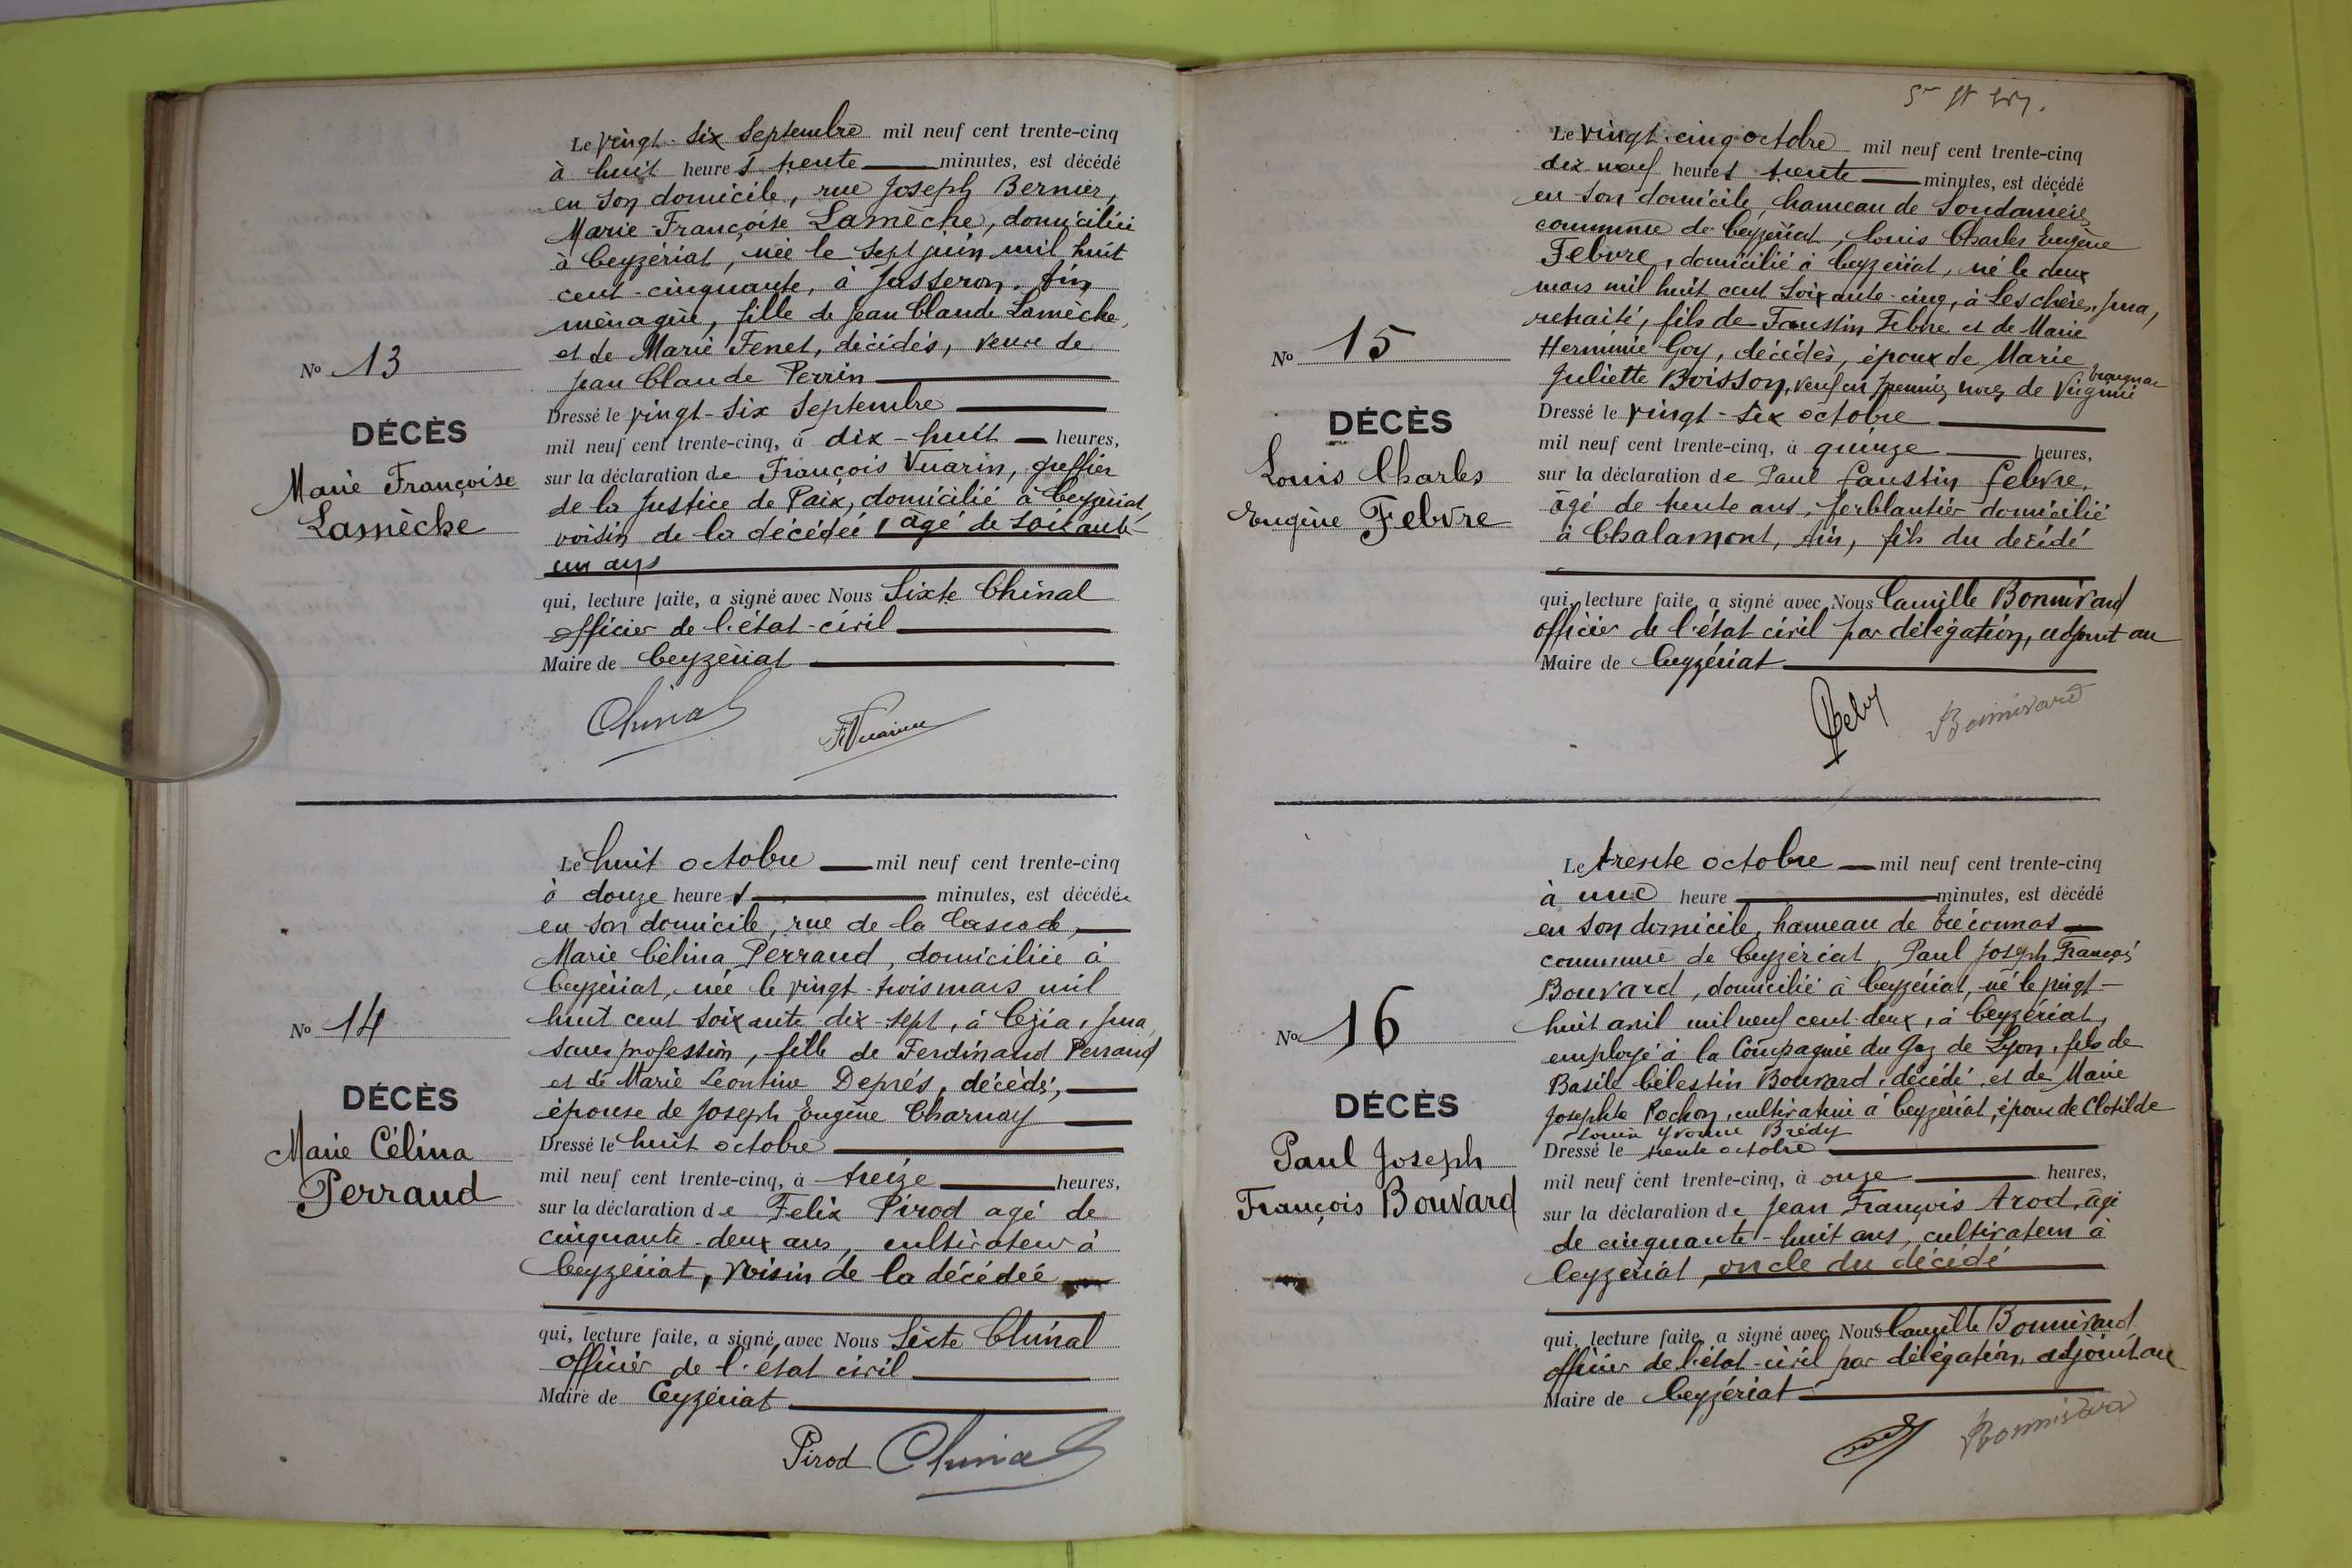 Le vingt-six Septembre mil neuf cent trente-cinq
à huit heures trente minutes, est décédé
en son domicile, rue Joseph Bernier,
Marie-Françoise Lamèche, domiciliée
à Ceyzériat, née le sept juin mil huit
cent-cinquante, à Jasseron, Ain,
ménagère, fille de Jean Claude Lamèche,
et de Marie Fenet, décédés, veuve de
Jean Claude Perrin
Nº 13
DÉCÈS
Marie Françoise
Lamèche
Dressé le vingt-six Septembre
mil neuf cent trente-cinq, à dix-huit heures,
sur la déclaration de François Vuarin, greffier
de la Justice de Paix, domicilié à Ceyzériat,
voisin de la décédée, âgé de soixante
un ans
qui, lecture faite, a signé avec Nous Sixte Chinal
officier de l'état-civil
Maire de Ceyzériat
Chinal
FVuarin
Le huit octobre mil neuf cent trente-cinq
à douze heures minutes, est décédée
en son domicile, rue de la Cascade,
Marie Célina Perraud, domiciliée à
Ceyzériat, née le vingt-trois mars mil
huit cent soixante dix-sept, à Cézia, Jura,
sans profession, fille de Ferdinand Perraud
et de Marie Léontine Deprés, décédés,
épouse de Joseph Eugène Charnay
Nº 14
DÉCÈS
Marie Célina
Perraud
Dressé le huit octobre
mil neuf cent trente-cinq, à treize heures,
sur la déclaration de Felix Pirod agé de
cinquante-deux ans, cultivateur à
Ceyzériat, voisin de la décédée
qui, lecture faite, a signé avec Nous Sixte Chinal
officier de l'état civil
Maire de Ceyzériat
Pirod Chinal
Le vingt-cinq octobre mil neuf cent trente-cinq
dix neuf heures trente minutes, est décédé
en son domicile, hameau de Soudanière,
commune de Ceyzériat, Louis Charles Eugène
Febvre, domicilié à Ceyzériat, né le deux
mars mil huit cent soixante-cinq, à Leschères, Jura,
retraité, fils de Faustin Febvre et de Marie
Herminie Goy, décédés, époux de Marie
Juliette Boisson, veuf en premières noces de Virginie
Nº 15
DÉCÈS
Louis Charles
Eugène Febvre
Dressé le vingt-six octobre
mil neuf cent trente-cinq, à quinze heures,
sur la déclaration de Paul Faustin Febvre,
âgé de trente ans, ferblantier domicilié
à Chalamont, Ain, fils du décédé
qui, lecture faite, a signé avec Nous Camille Bonnivard
officier de l'état civil par délégation, adjoint au
Maire de Ceyzériat
Bonnivard
Le trente octobre mil neuf cent trente-cinq
à une heure minutes, est décédé
en son domicile, hameau de Tréconnas
commune de Ceyzériat, Paul Joseph François
Bouvard, domicilié à Ceyzériat, né le vingt-
huit avril mil neuf cent deux, à Ceyzériat,
employé à la Compagnie du Gaz de Lyon, fils de
Basile Célestin Bouvard, décédé, et de Marie
Josephte Pochon, cultivatrice à Ceyzériat, époux de Clotilde
Louise Yvonne Brédy
Nº 16
DÉCÈS
Paul Joseph
François Bouvard
Dressé le trente octobre
mil neuf cent trente-cinq, à onze heures,
sur la déclaration de Jean François Arod, âgé
de cinquante-huit ans, cultivateur à
Ceyzériat, oncle du décédé
qui, lecture faite, a signé avec Nous Camille Bonnivard
officier de l'état-civil par délégation, adjoint au
Maire de Ceyzériat
Bonnivard